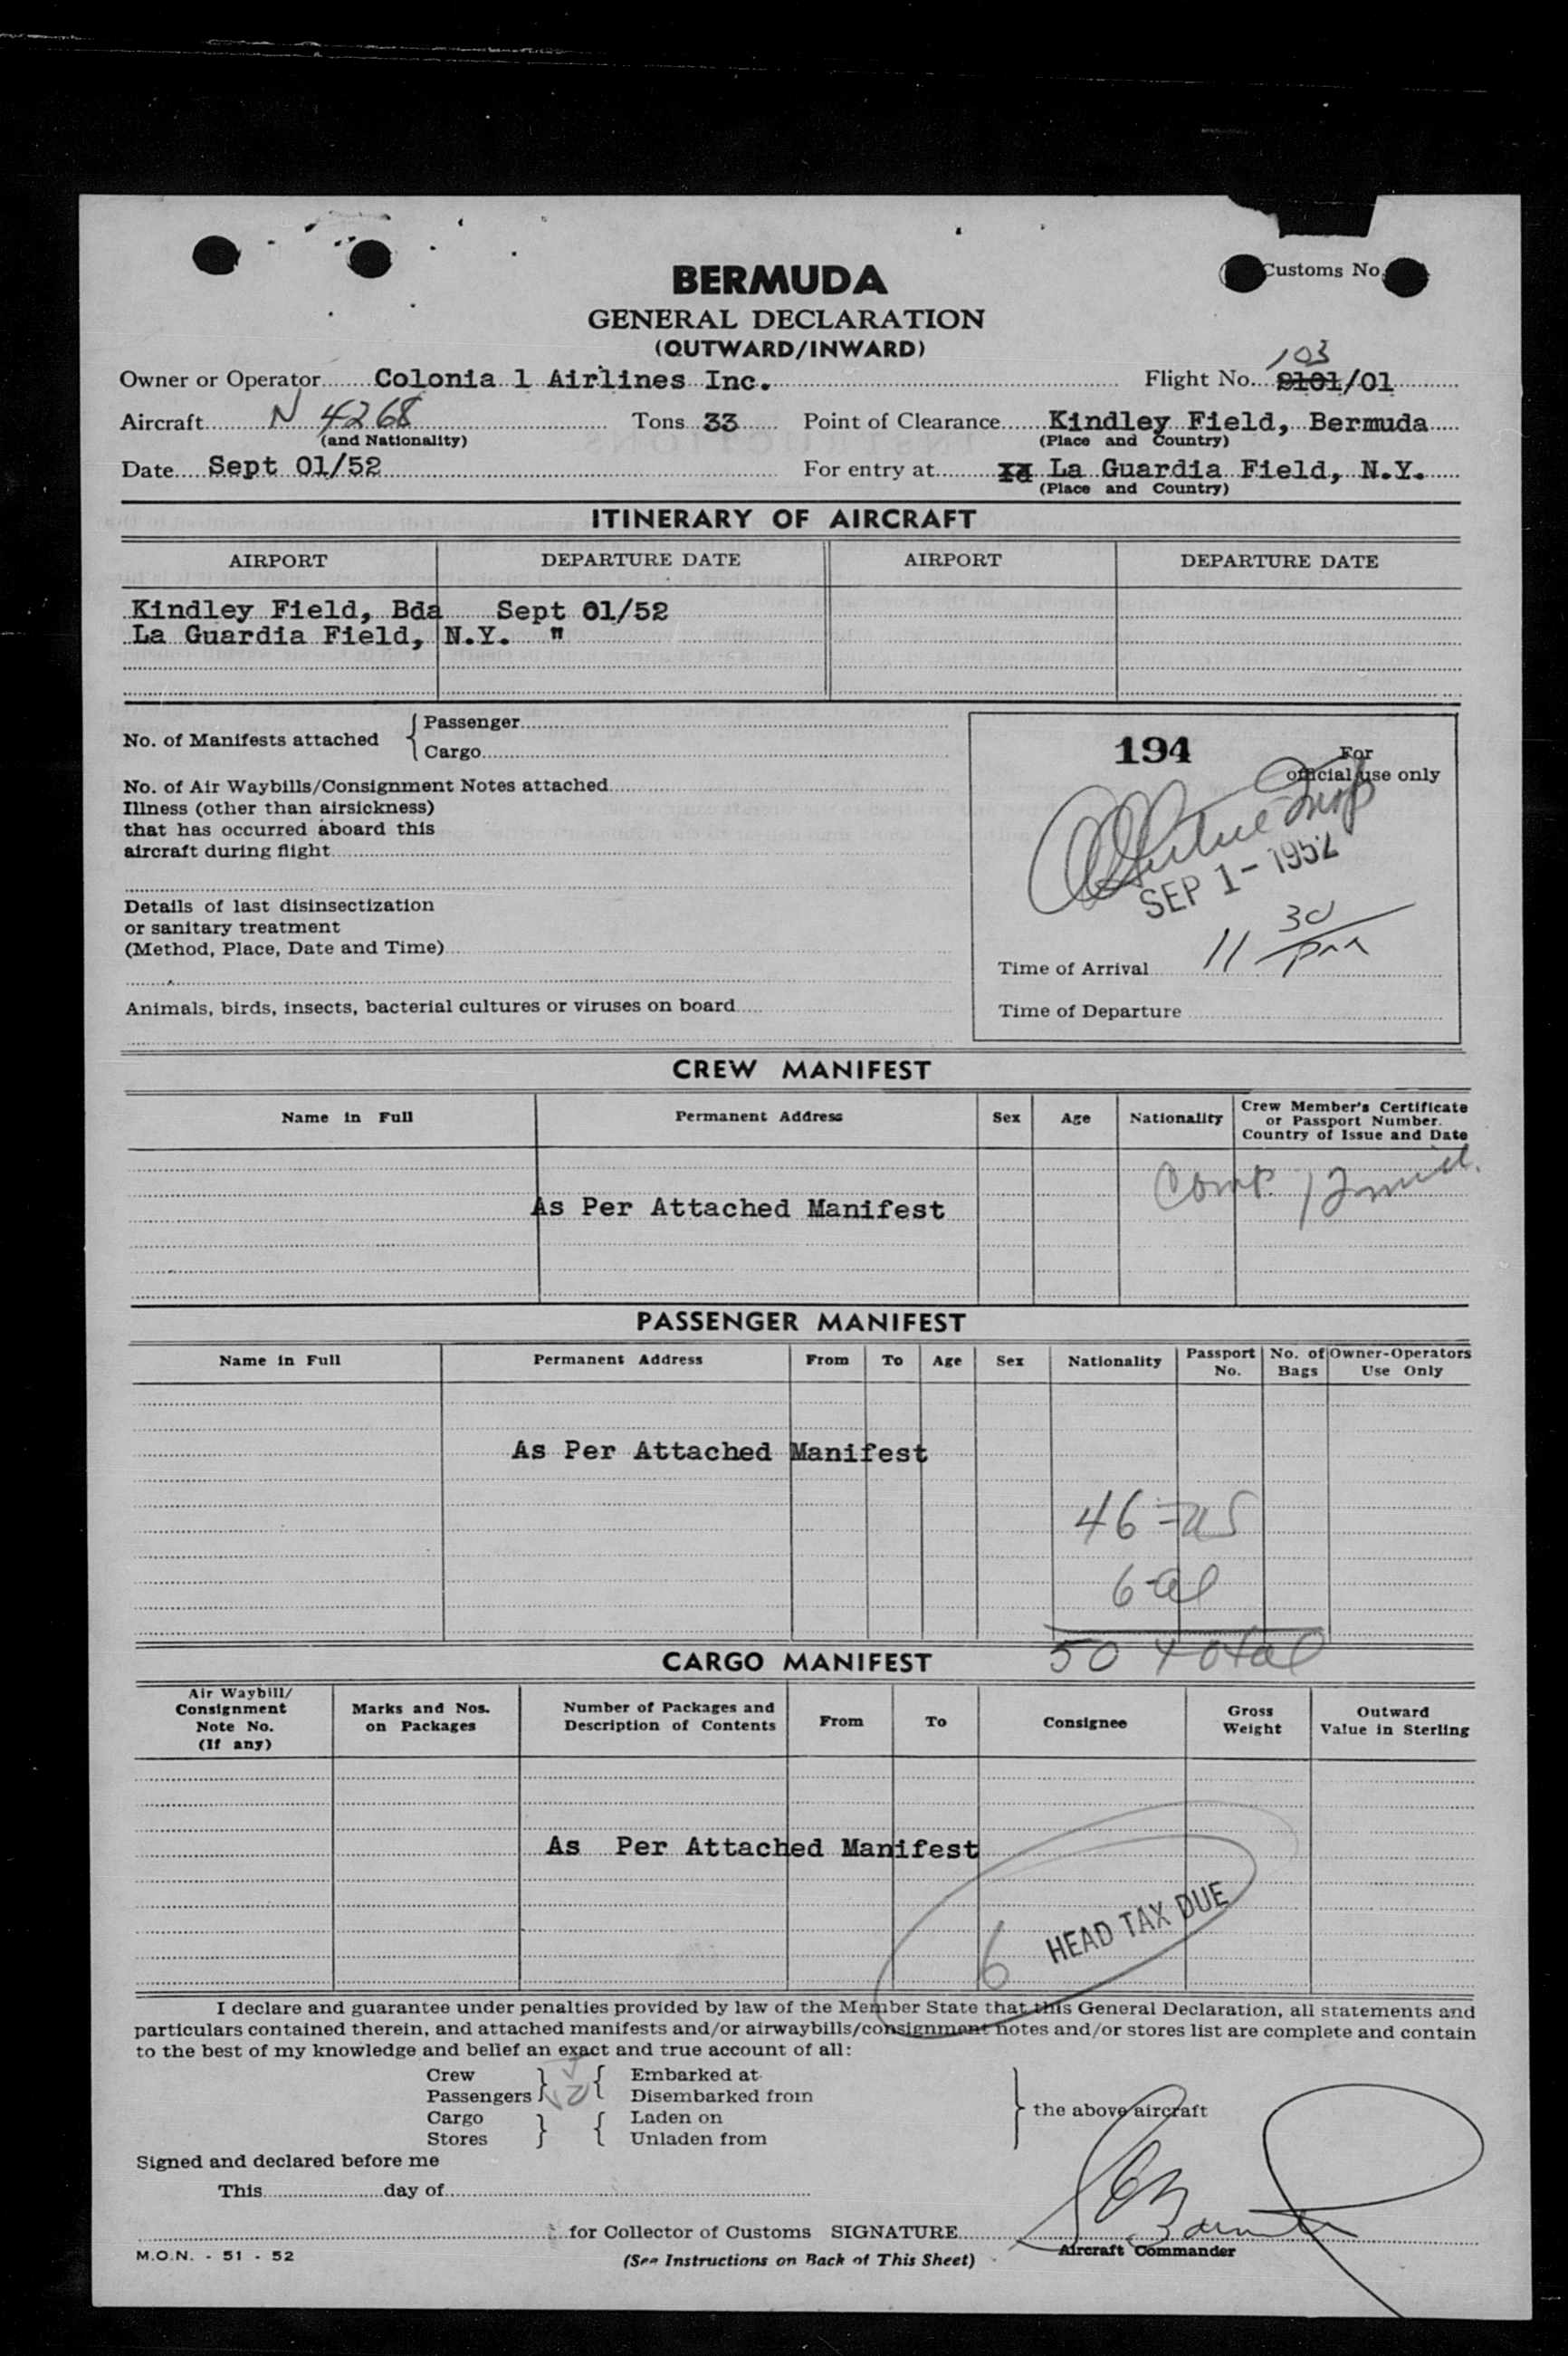 Customs No.
BERMUDA
GENERAL DECLARATION
(OUTWARD/INWARD)
103
Owner or Operator Colonia l Airlines Inc. Flight No. 8101/01
Aircraft N 4268 Tons 33 Point of Clearance Kindley Field, Bermuda
(and Nationality) (Place and Country)
Date Sept 01/52 For entry at La Guardia Field, N.Y.
(Place and Country)
ITINERARY OF AIRCRAFT
AIRPORT DEPARTURE DATE AIRPORT DEPARTURE DATE
Kindley Field, Bda Sept 01/52
La Guardia Field, N.Y. "
No. of Manifests attached { Passenger
Cargo
No. of Air Waybills/Consignment Notes attached
Illness (other than airsickness)
that has occurred aboard this
aircraft during flight
Details of last disinsectization
or sanitary treatment
(Method, Place, Date and Time)
Animals, birds, insects, bacterial cultures or viruses on board
194 For
official use only
SEP 1 - 1952
Time of Arrival 11 30 pm
Time of Departure
CREW MANIFEST
Name in Full Permanent Address Sex Age Nationality Crew Member's Certificate
or Passport Number.
Country of Issue and Date
Comp.
As Per Attached Manifest
PASSENGER MANIFEST
Name in Full Permanent Address From To Age Sex Nationality Passport No. No. of Bags Owner-Operators Use Only
As Per Attached Manifest
46 = US
6-al
50 total
CARGO MANIFEST
Air Waybill/
Consignment
Note No.
(If any)
Marks and Nos.
on Packages
Number of Packages and
Description of Contents
From To Consignee
Gross
Weight
Outward
Value in Sterling
As Per Attached Manifest
6 HEAD TAX DUE
I declare and guarantee under penalties provided by law of the Member State that this General Declaration, all statements and
particulars contained therein, and attached manifests and/or airwaybills/consignment notes and/or stores list are complete and contain
to the best of my knowledge and belief an exact and true account of all:
Crew } { Embarked at
Passengers Disembarked from
} the above aircraft
Cargo } { Laden on
Stores Unladen from
Signed and declared before me
This day of
for Collector of Customs SIGNATURE
Aircraft Commander
M.O.N. - 51 - 52 (See Instructions on Back of This Sheet)